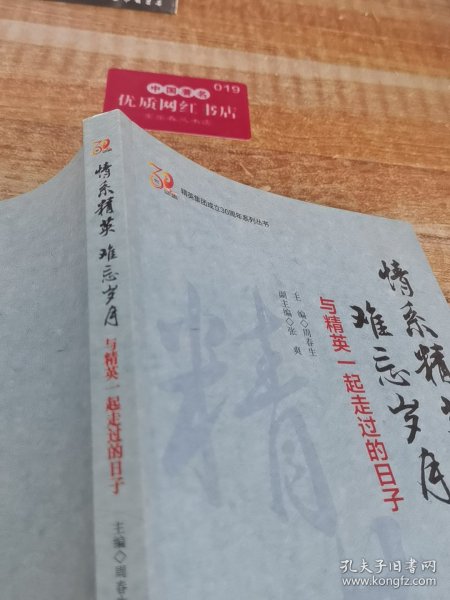 中国著名
019
优质网红书店
30
精英集团成立30周年系列丛书
情系精英
难忘岁月
与精英一起走过的日子
主编◇周春生
副主编◇张爽
精
30
情系精英 难忘岁月
与精英一起走过的日子
主编◇周春
孔夫子旧书网
www.kongfz.com